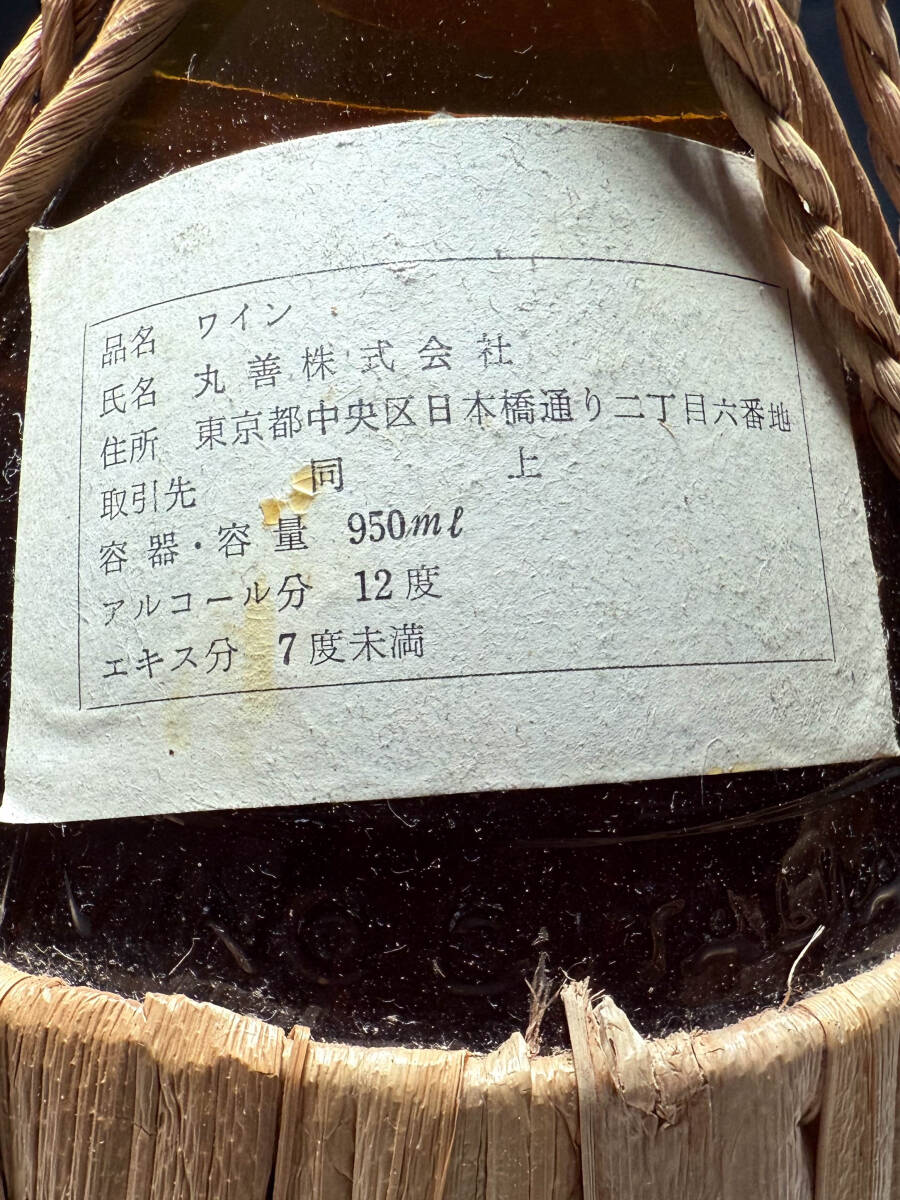 品名 ワイン
氏名 丸善株式会社
住所 東京都中央区日本橋通り二丁目六番地
取引先 同 上
容器・容量 950ml
アルコール分 12度
エキス分 7度未満